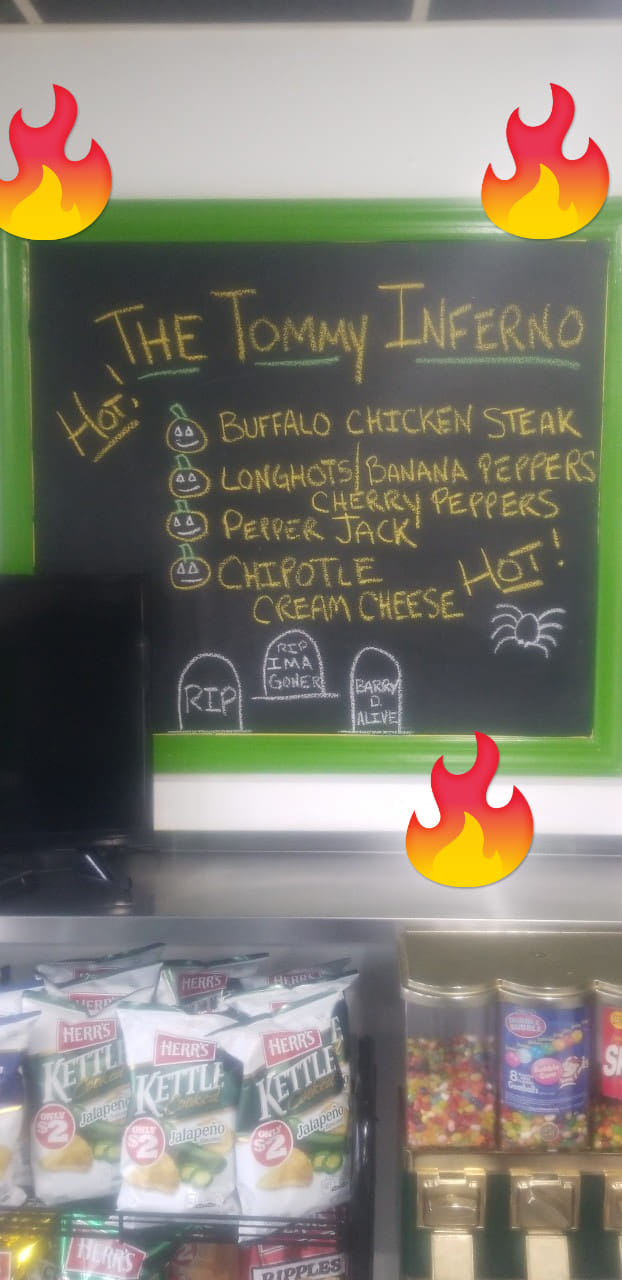 THE TOMMY INFERNO
HOT!
BUFFALO CHICKEN STEAK
LONGHOTS/BANANA PEPPERS
CHERRY PEPPERS
PEPPER JACK
CHIPOTLE
CREAM CHEESE
HOT!
RIP
RIP
IMA
GONER
BARRY
D.
ALIVE
HERR'S
HERR'S
HERR'S
KETTLE
COOKED
ONLY
$2
Jalapeño
HERR'S
KETTLE
COOKED
ONLY
$2
Jalapeño
HERR'S
KETTLE
COOKED
ONLY
$2
Jalapeño
DUBBLE
BUBBLE
8
Gumballs
HERR'S
RIPPLES